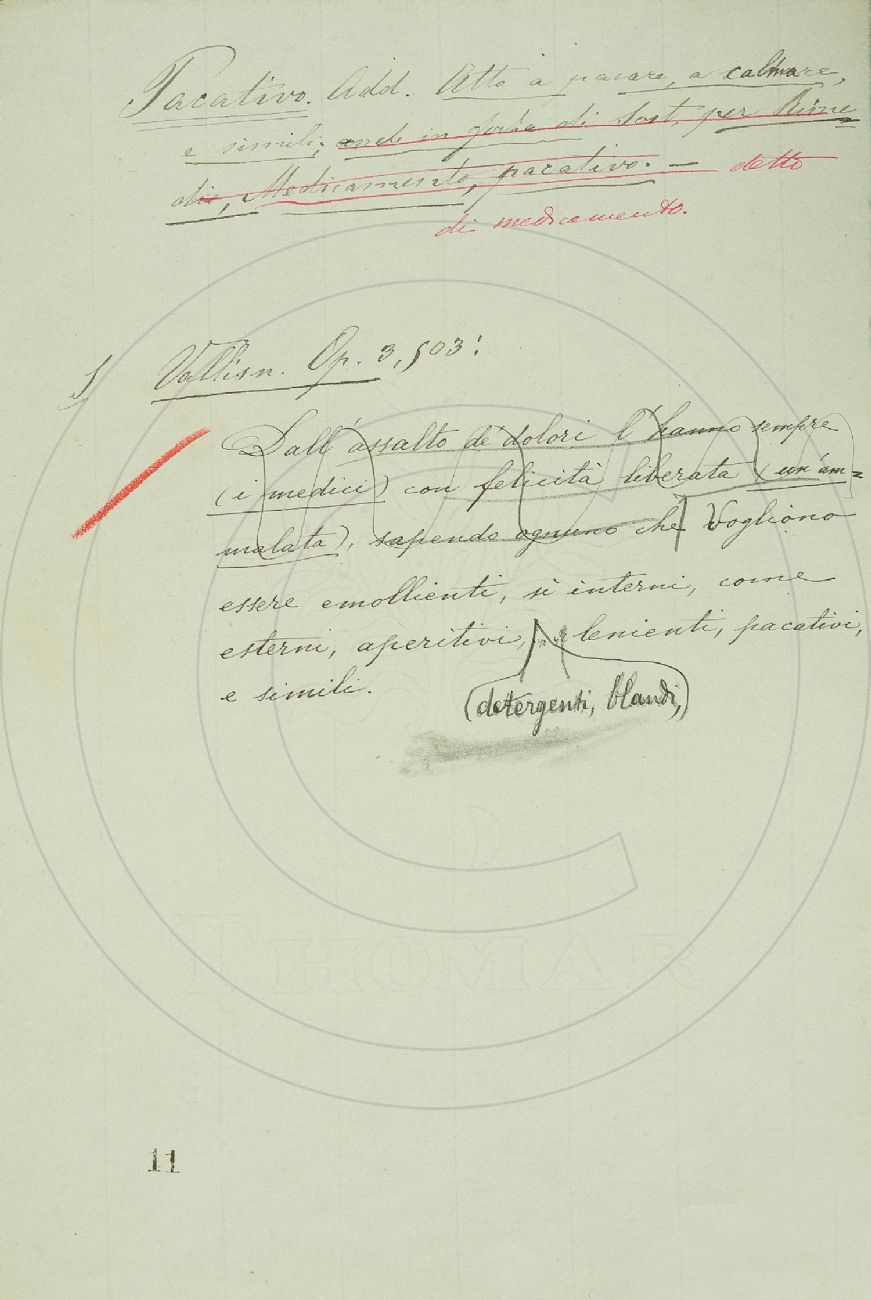 Pacativo. Add. Atto a pacare, a calmare,
e simili; onde in forza di Sost. per Rime
dio, Medicamento, pacativo. — detto
di medicamento.
Vallisn. Op. 3, 503:
Dall'assalto de' dolori l'hanno sempre
(i medici) con felicità liberata (un'am=
malata), sapendo ognuno che vogliono
essere emollienti, sì interni, come
esterni, aperitivi, lenienti, pacativi,
e simili.
(detergenti, blandi,)
THOMAR
11